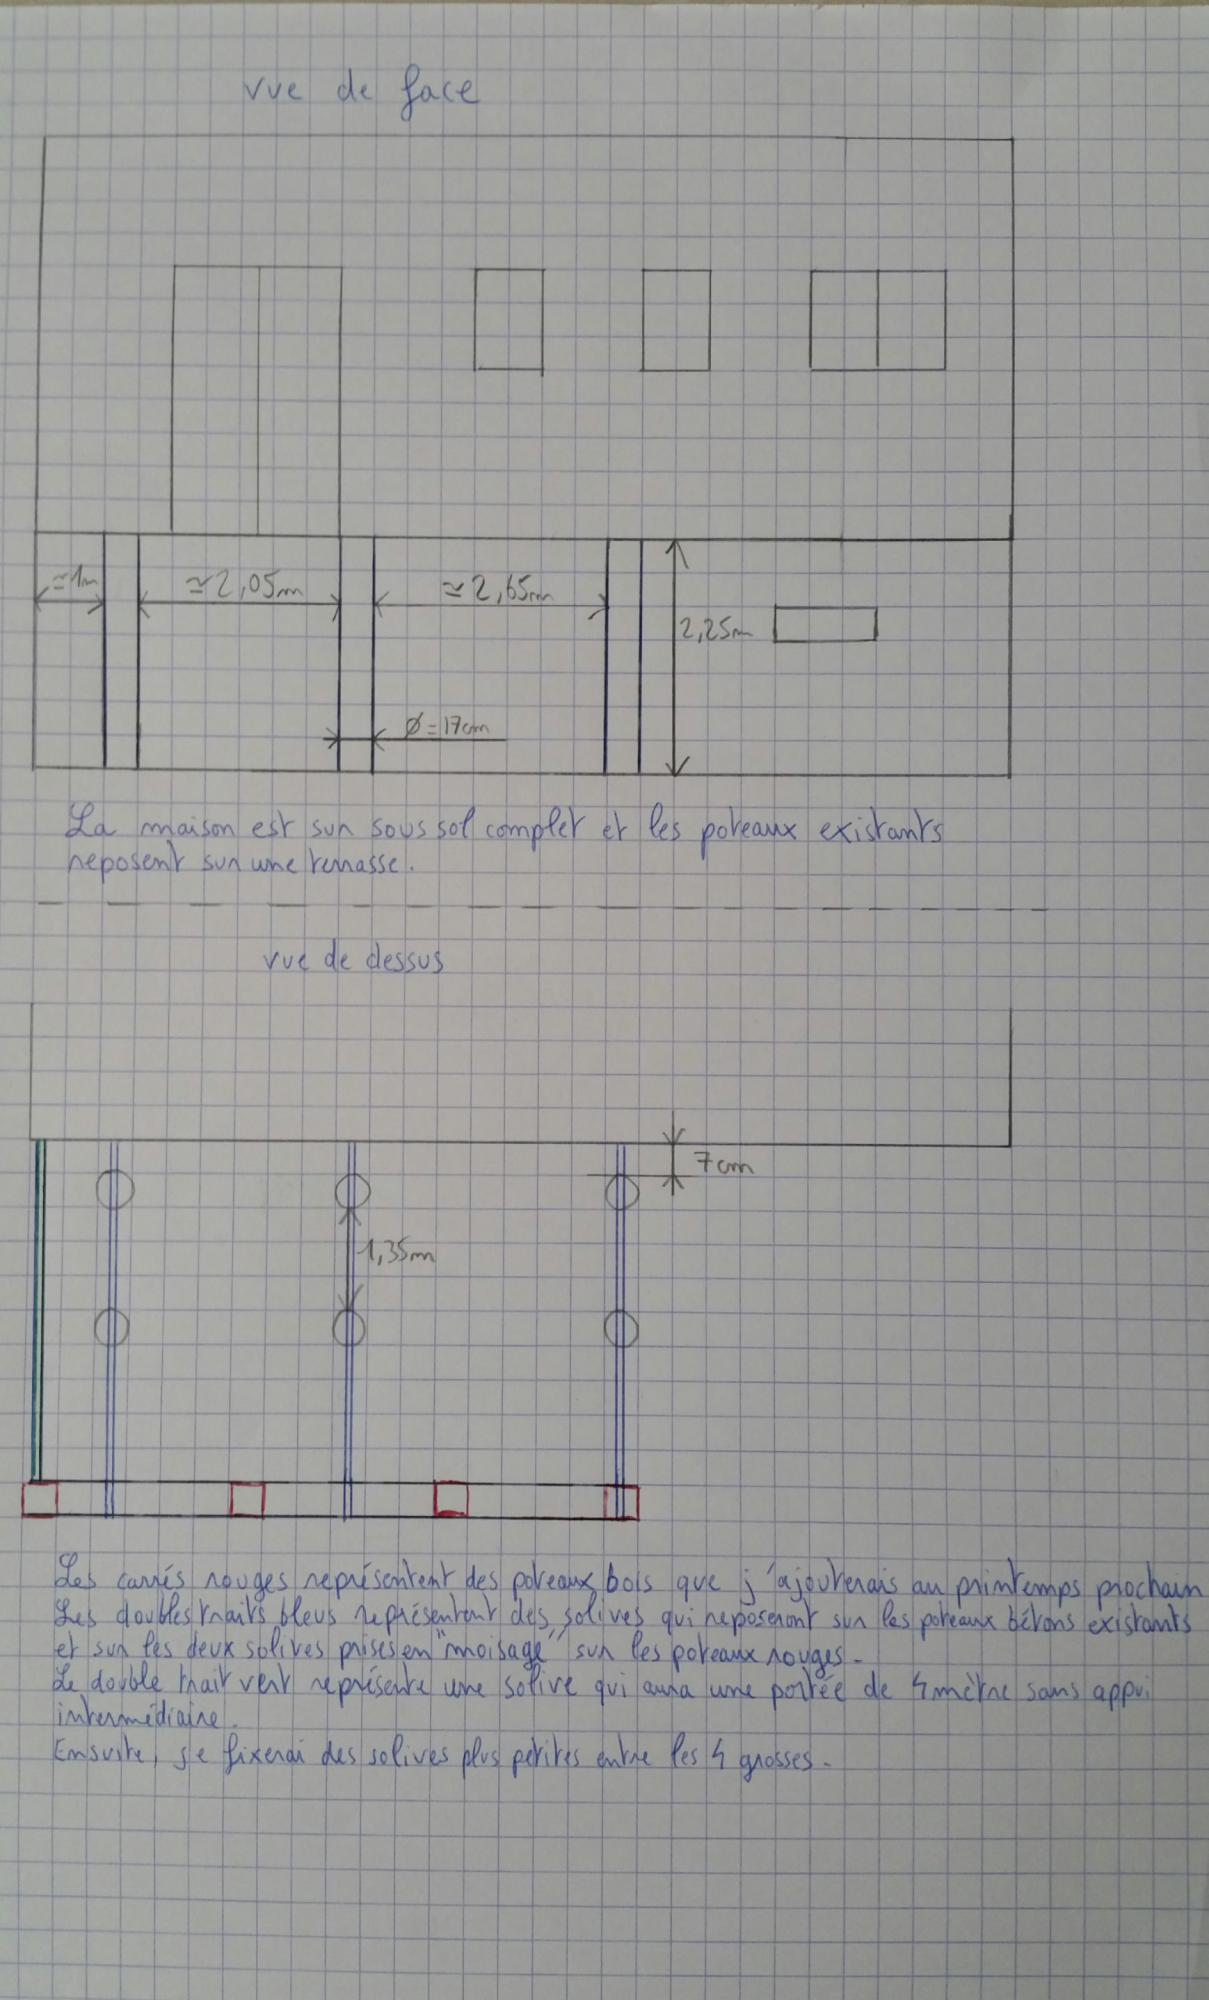 vue de face
≃1m ≃2,05m ≃2,65m
2,25m
Ø=17cm
La maison est sur sous sol complet et les poteaux existants
reposent sur une terrasse.
vue de dessus
7cm
1,35m
Les carrés rouges représentent des poteaux bois que j'ajouterais au printemps prochain
Les doubles traits bleus représentent des solives qui reposeront sur les poteaux bétons existants
et sur les deux solives prises en "moisage" sur les poteaux rouges.
Le double trait vert représente une solive qui aura une portée de 4 mètre sans appui
intermédiaire.
Ensuite, je fixerai des solives plus petites entre les 4 grosses.